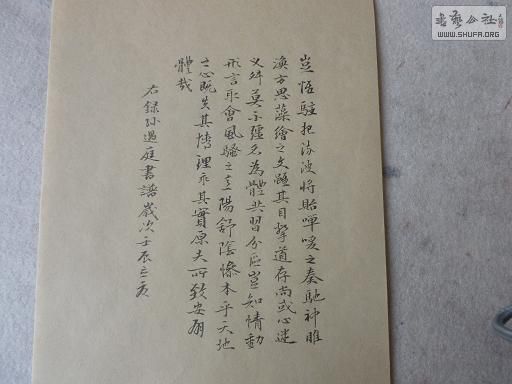 豈惟駐想流波將貽嘽喛之奏馳神睢
渙方思藻繪之文雖其目擊道存尚或心迷
义舛莫不彊名為體共習分區豈知情動
形言取會風騷之意陽舒陰慘本乎天地
之心既失其情理乖其實原夫所致安有
體哉
右録孫過庭書譜歲次壬辰立夏
書藝公社
WWW.SHUFA.ORG